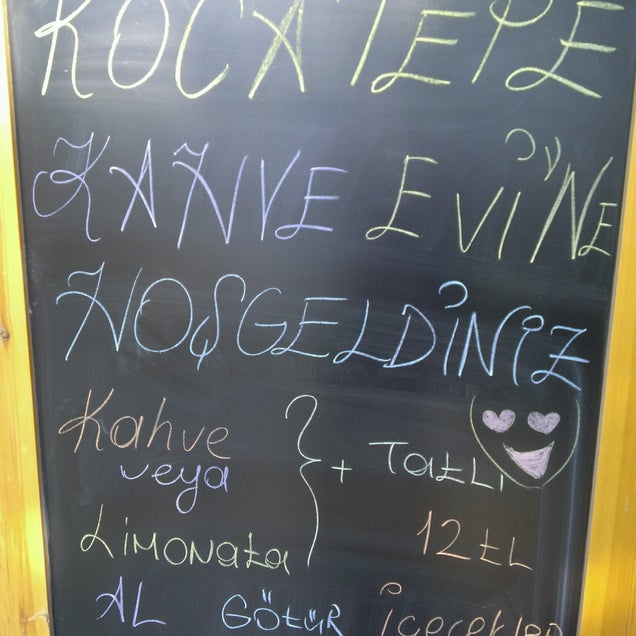 KOCATEPE
KAHVE EVİNE
HOŞGELDİNİZ
Kahve
veya
LİMONata
+ Tatlı
12 tL
AL GÖtÜR İçecekler